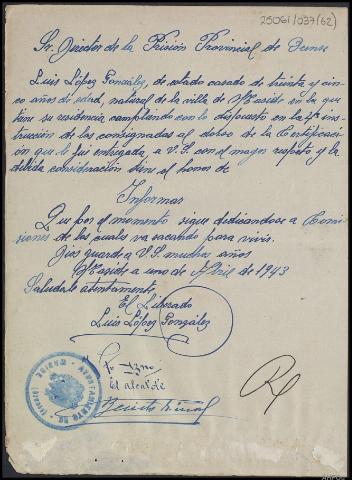 25061/037(62)
Sr. Director de la Prisión Provincial de Orense
Luis López González, de estado casado de treinta y cin-
co años de edad, natural de la villa de Maside en la que
tiene su residencia cumpliendo con lo dispuesto en la 7ª ins-
trucción de las consignadas al dorso de la Certificaci-
ón que le fui entregada, a V.S. con el mayor respeto y la
debida consideración tiene el honor de
Informar
Que por el momento sigue dedicandose a Comi-
siones de las cuales va sacando para vivir.
Dios guarde a V.S. muchos años
Maside a uno de Abril de 1943
Saludale atentamente
El Liberado
Luis López González
El alcalde
AYUNTAMIENTO DE MASIDE (ORENSE)